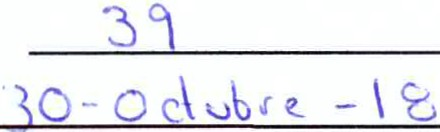 39
30-Octubre-18